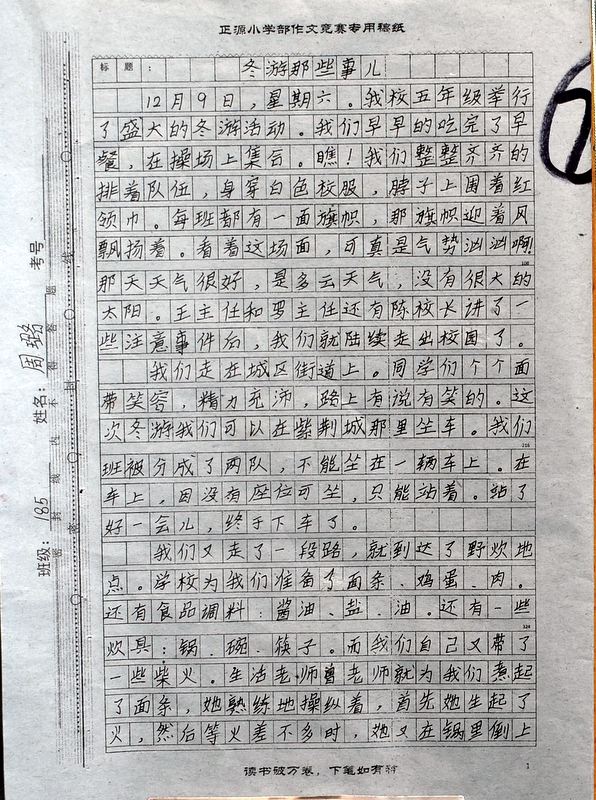 正源小学部作文竞赛专用稿纸
标 题 : 冬游那些事儿
12月9日，星期六。我校五年级举行
了盛大的冬游活动。我们早早的吃完了早
餐，在操场上集合。瞧！我们整整齐齐的
排着队伍，身穿白色校服，脖子上围着红
领巾。每班都有一面旗帜，那旗帜迎着风
飘扬着。看着这场面，可真是气势汹汹啊!
那天天气很好，是多云天气，没有很大的
太阳。王主任和罗主任还有陈校长讲了一
些注意事件后，我们就陆续走出校园了。
我们走在城区街道上。同学们个个面
带笑容，精力充沛，路上有说有笑的。这
次冬游我们可以在紫荆城那里坐车。我们
班被分成了两队，不能坐在一辆车上。在
车上，因没有座位可坐，只能站着。站了
好一会儿，终于下车了。
我们又走了一段路，就到达了野炊地
点。学校为我们准备了面条、鸡蛋、肉。
还有食品调料：酱油、盐、油。还有一些
炊具：锅、碗、筷子。而我们自己又带了
一些柴火。生活老师曾老师就为我们煮起
了面条，她熟练地操纵着，首先她生起了
火，然后等火差不多时，她又在锅里倒上
读书破万卷，下笔如有神
1
班级：185
姓名：周璐
考号